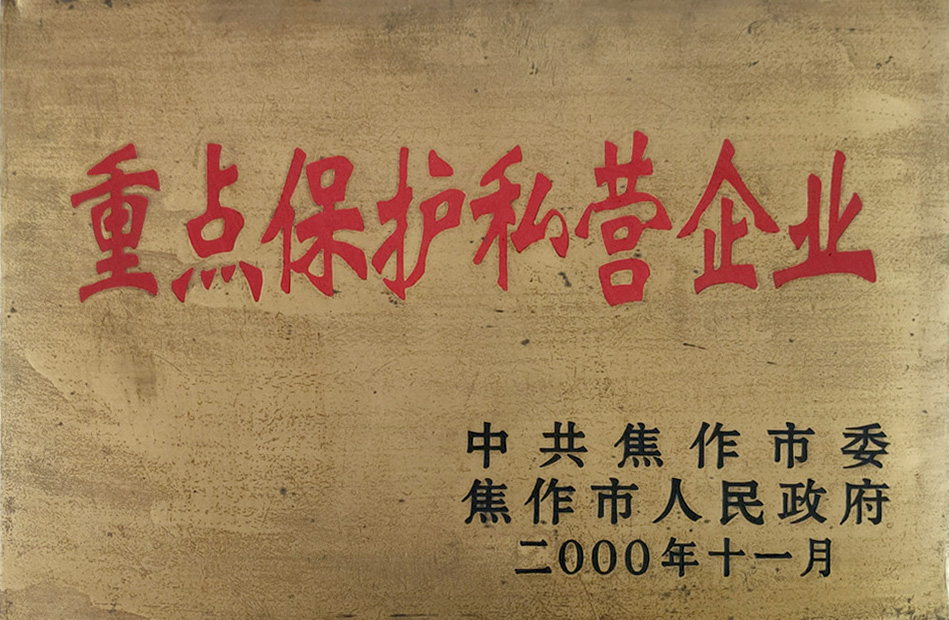 重点保护私营企业
中共焦作市委
焦作市人民政府
二000年十一月